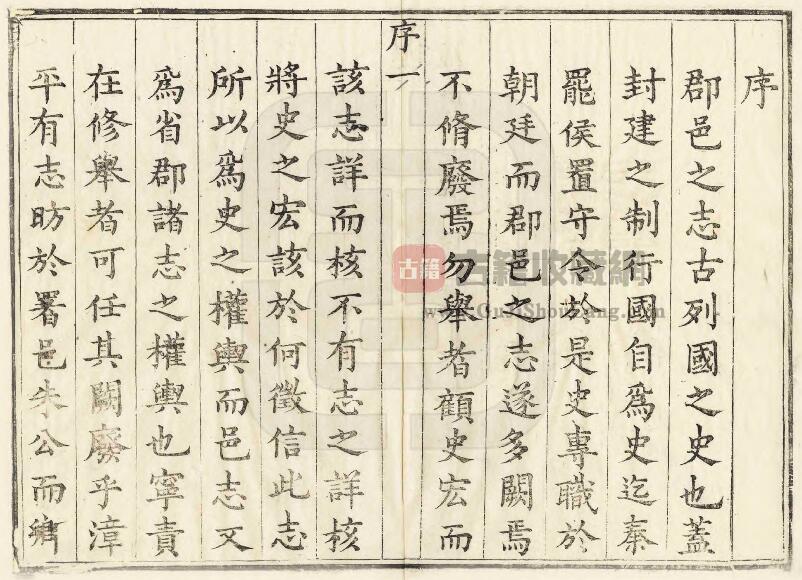 序
郡邑之志古列國之史也蓋
封建之制行國自爲史迄秦
罷侯置守令於是史專職於
朝廷而郡邑之志遂多闕焉
不脩廢焉勿舉者顧史宏而
序一
該志詳而核不有志之詳核
將史之宏該於何徵信此志
所以爲史之權輿而邑志又
爲省郡諸志之權輿也寧責
在修舉者可任其闕廢乎漳
平有志昉於署邑朱公而鄉
古籍
古籍收藏網
www.GuJiShouCang.com